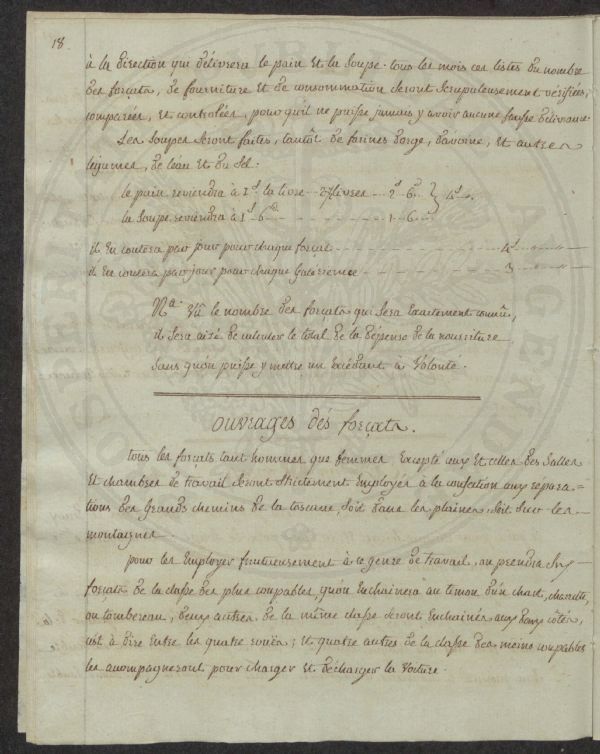 18.
à la direction qui délivrera le pain et la soupe. tous les mois ces listes du nombre
des forçats, de fourniture et de consommation seront scrupuleusement vérifiées,
comparées, et controlées, pour qu'il ne puisse jamais y avoir aucune fausse délivrance.
Les soupes seront faites, tantôt de farines d'orge, d'avoine, et autres
légumes, de l'eau et du sel.
le pain reviendra à 1ˢ la livre 2ˢ 6ᵈ } 4ˢ
la soupe reviendra à 1ˢ 6ᵈ 1 6
il en coutera par jour pour chaque forçat 4ˢ "
il en coutera par jour pour chaque galerienne 3 "
Nᵃ. Vû le nombre des forçats qui sera exactement connû,
il sera aisé de calculer le total de la dépense de la nourriture
sans qu'on puisse y mettre un excédant à volonté.
ouvrages dés forçats.
tous les forçats tant hommes que femmes excepté ceux et celles des salles
et chambres de travail seront strictement employés à la confection aux répara=
tions des grands chemins de la toscane, soit dans les plaines, soit sur les
montagnes.
pour les employer fructueusement à ce genre de travail, on prendra six
forçats de la classe des plus coupables, qu'on enchainera au timon d'un chart, charette,
ou tombereau, deux autres de la même classe seront enchainés aux deux côtés,
c'est à dire entre les quatre rouës; et quatre autres de la classe des moins coupables
les accompagneront pour charger et décharger la voiture.